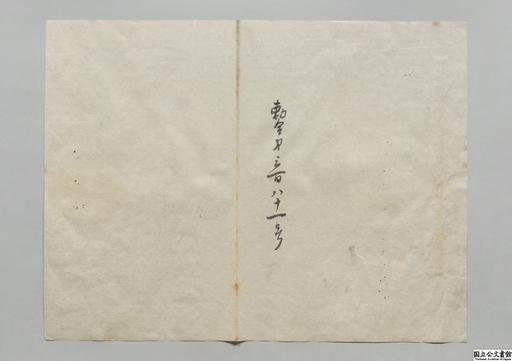 勅令第三百八十一号
国立公文書館
National Archives of Japan